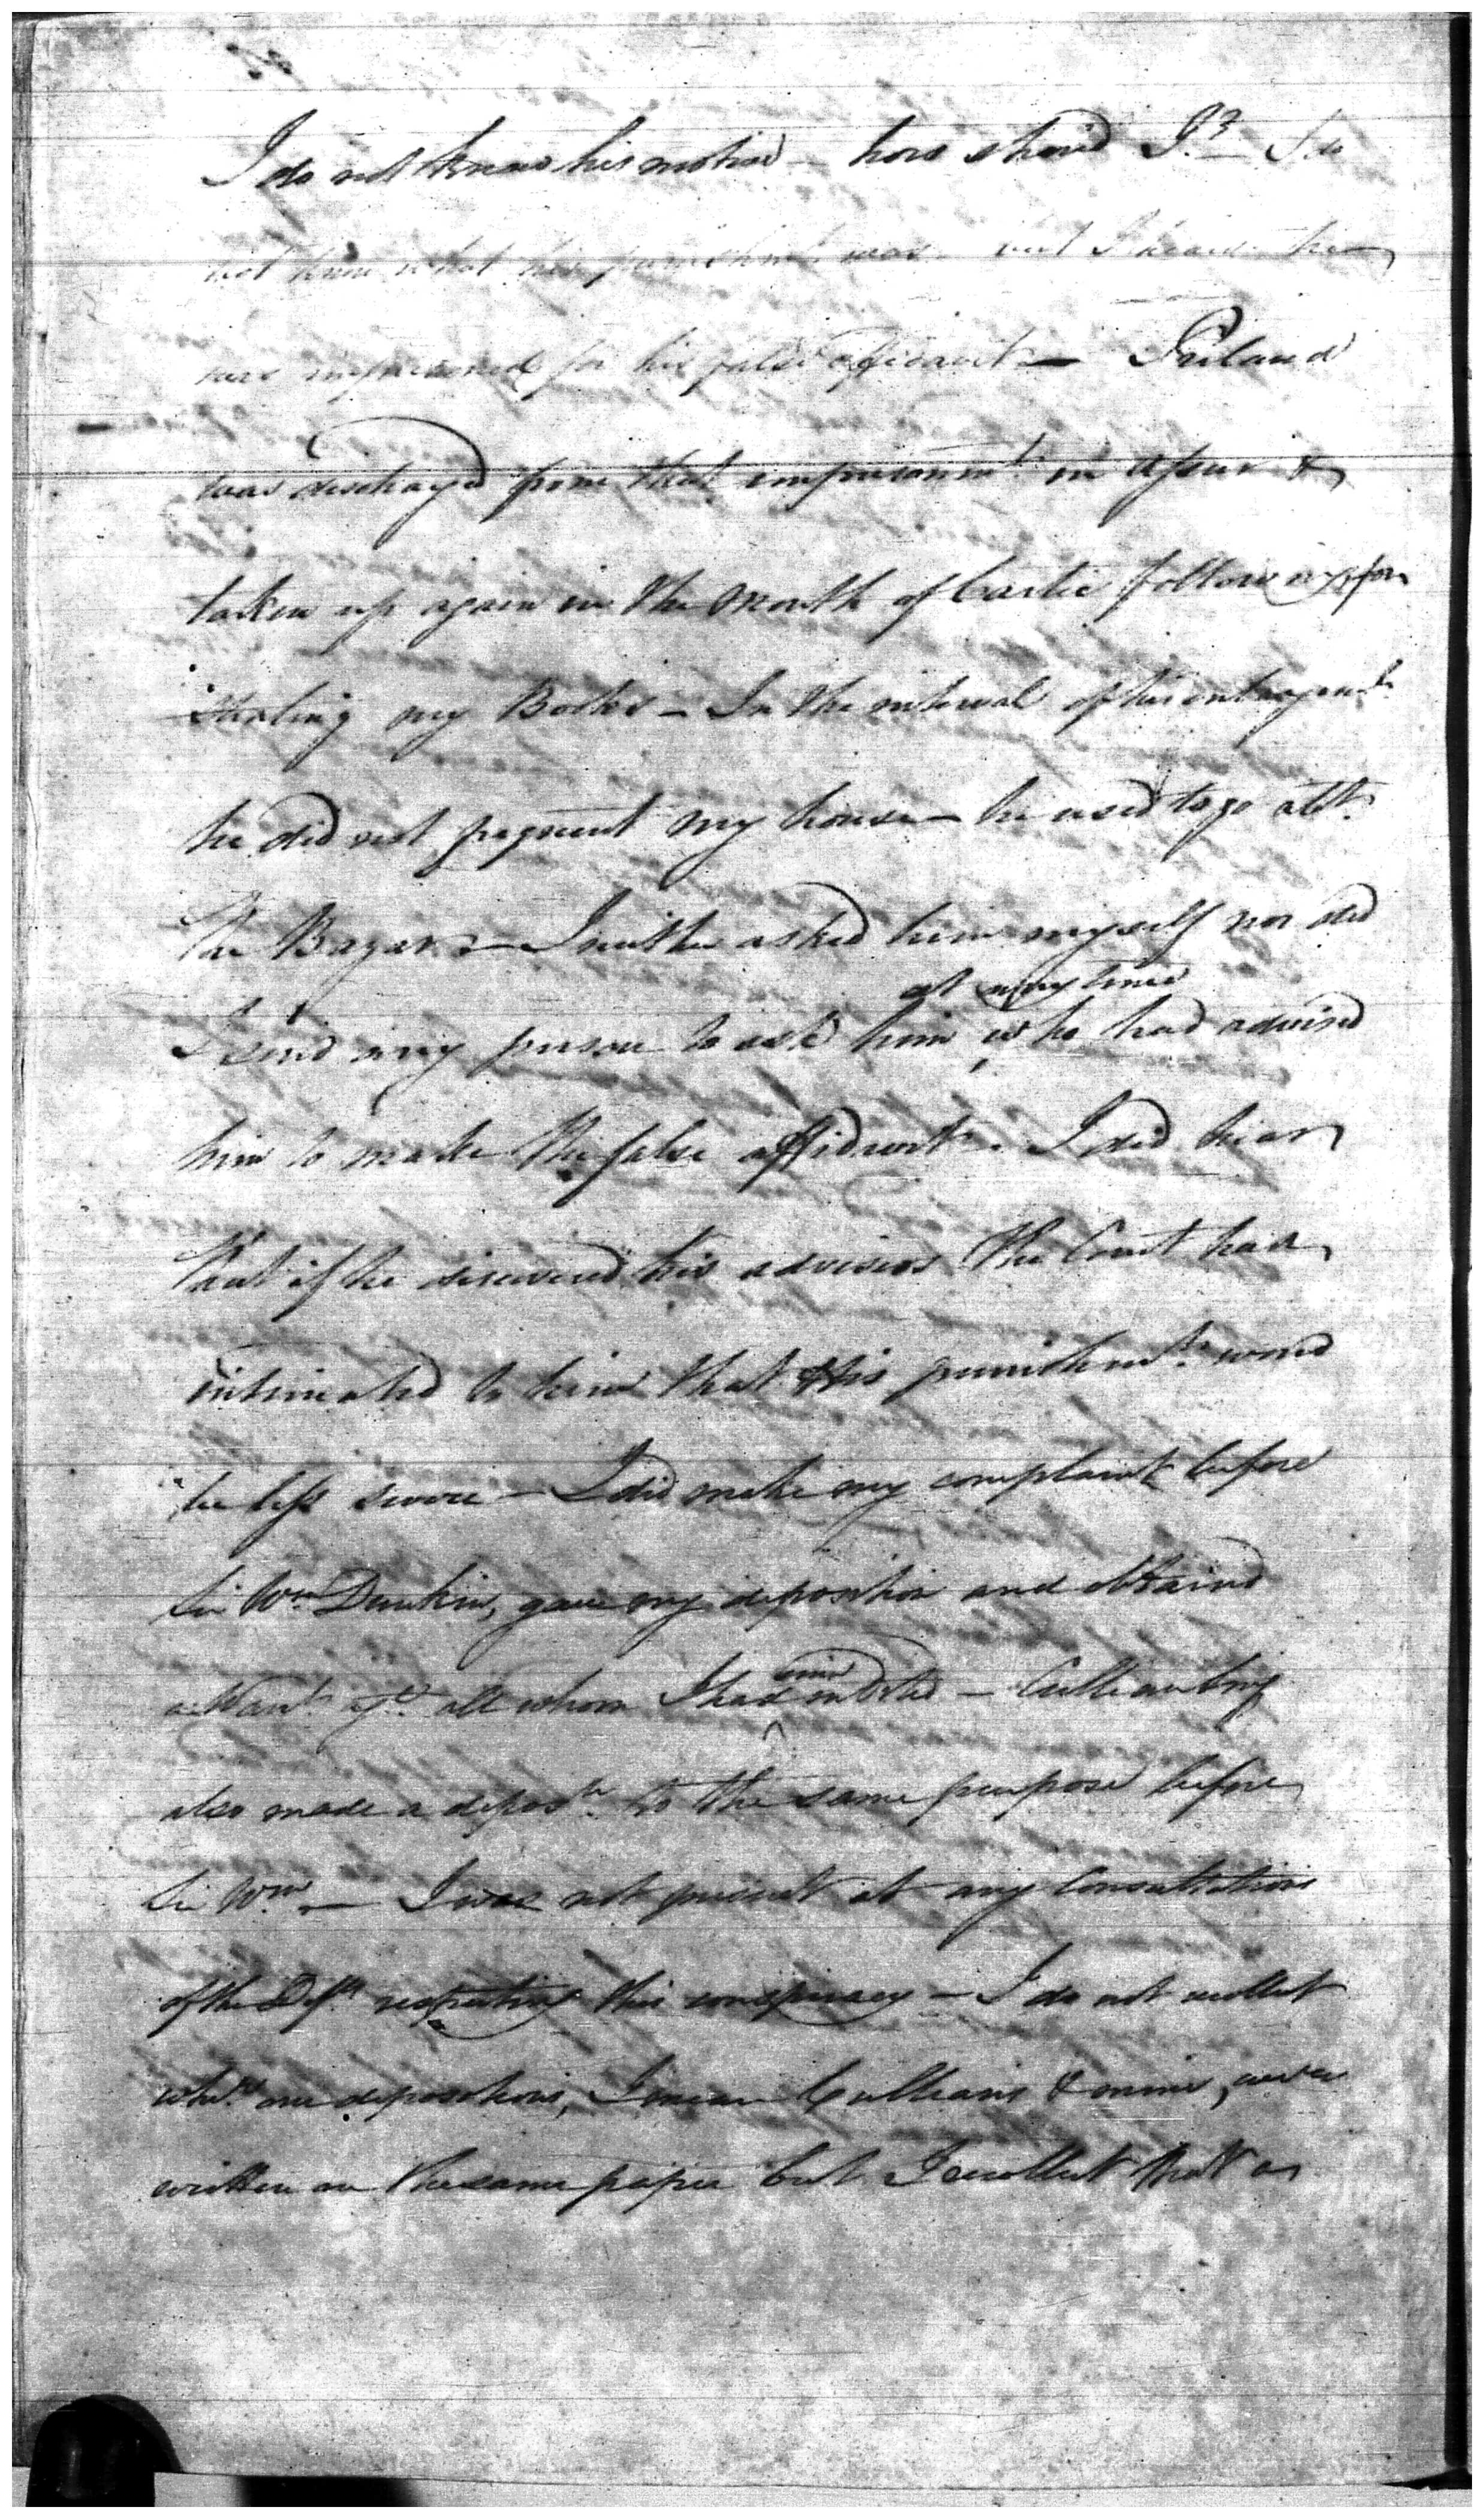 I do not know his motive – how should I? I do
not know what his punishmt. was – but I heard he
was imprisoned for his false affidavit – Pulland
was discharged from that imprisonmt. in Assur &
taken up again in the Month of Cartic following for
stealing my Books – In the interval of his enlargemt.
he did not frequent my house – he used to go abt.
the Bazar – I neither asked him myself nor did
at any time
I send any person to ask him who had advised
him to make the false affidavit. I did hear
that if he discovered his advisers the Court had
intimated to him that his punishmt. would
be less severe – I did make my complaint before
Sir Wm. Dunkin, gave my deposition and obtained
a Warrt. agt. all whom I had indicted – Cullian
also made a deposn. to the same purpose before
Sir Wm. – I was not present at any Consultations
of the Defts. respecting this conspiracy – I do not recollect
whr. our depositions, I mean Cullian's & mine, were
written on the same paper but I recollect that a